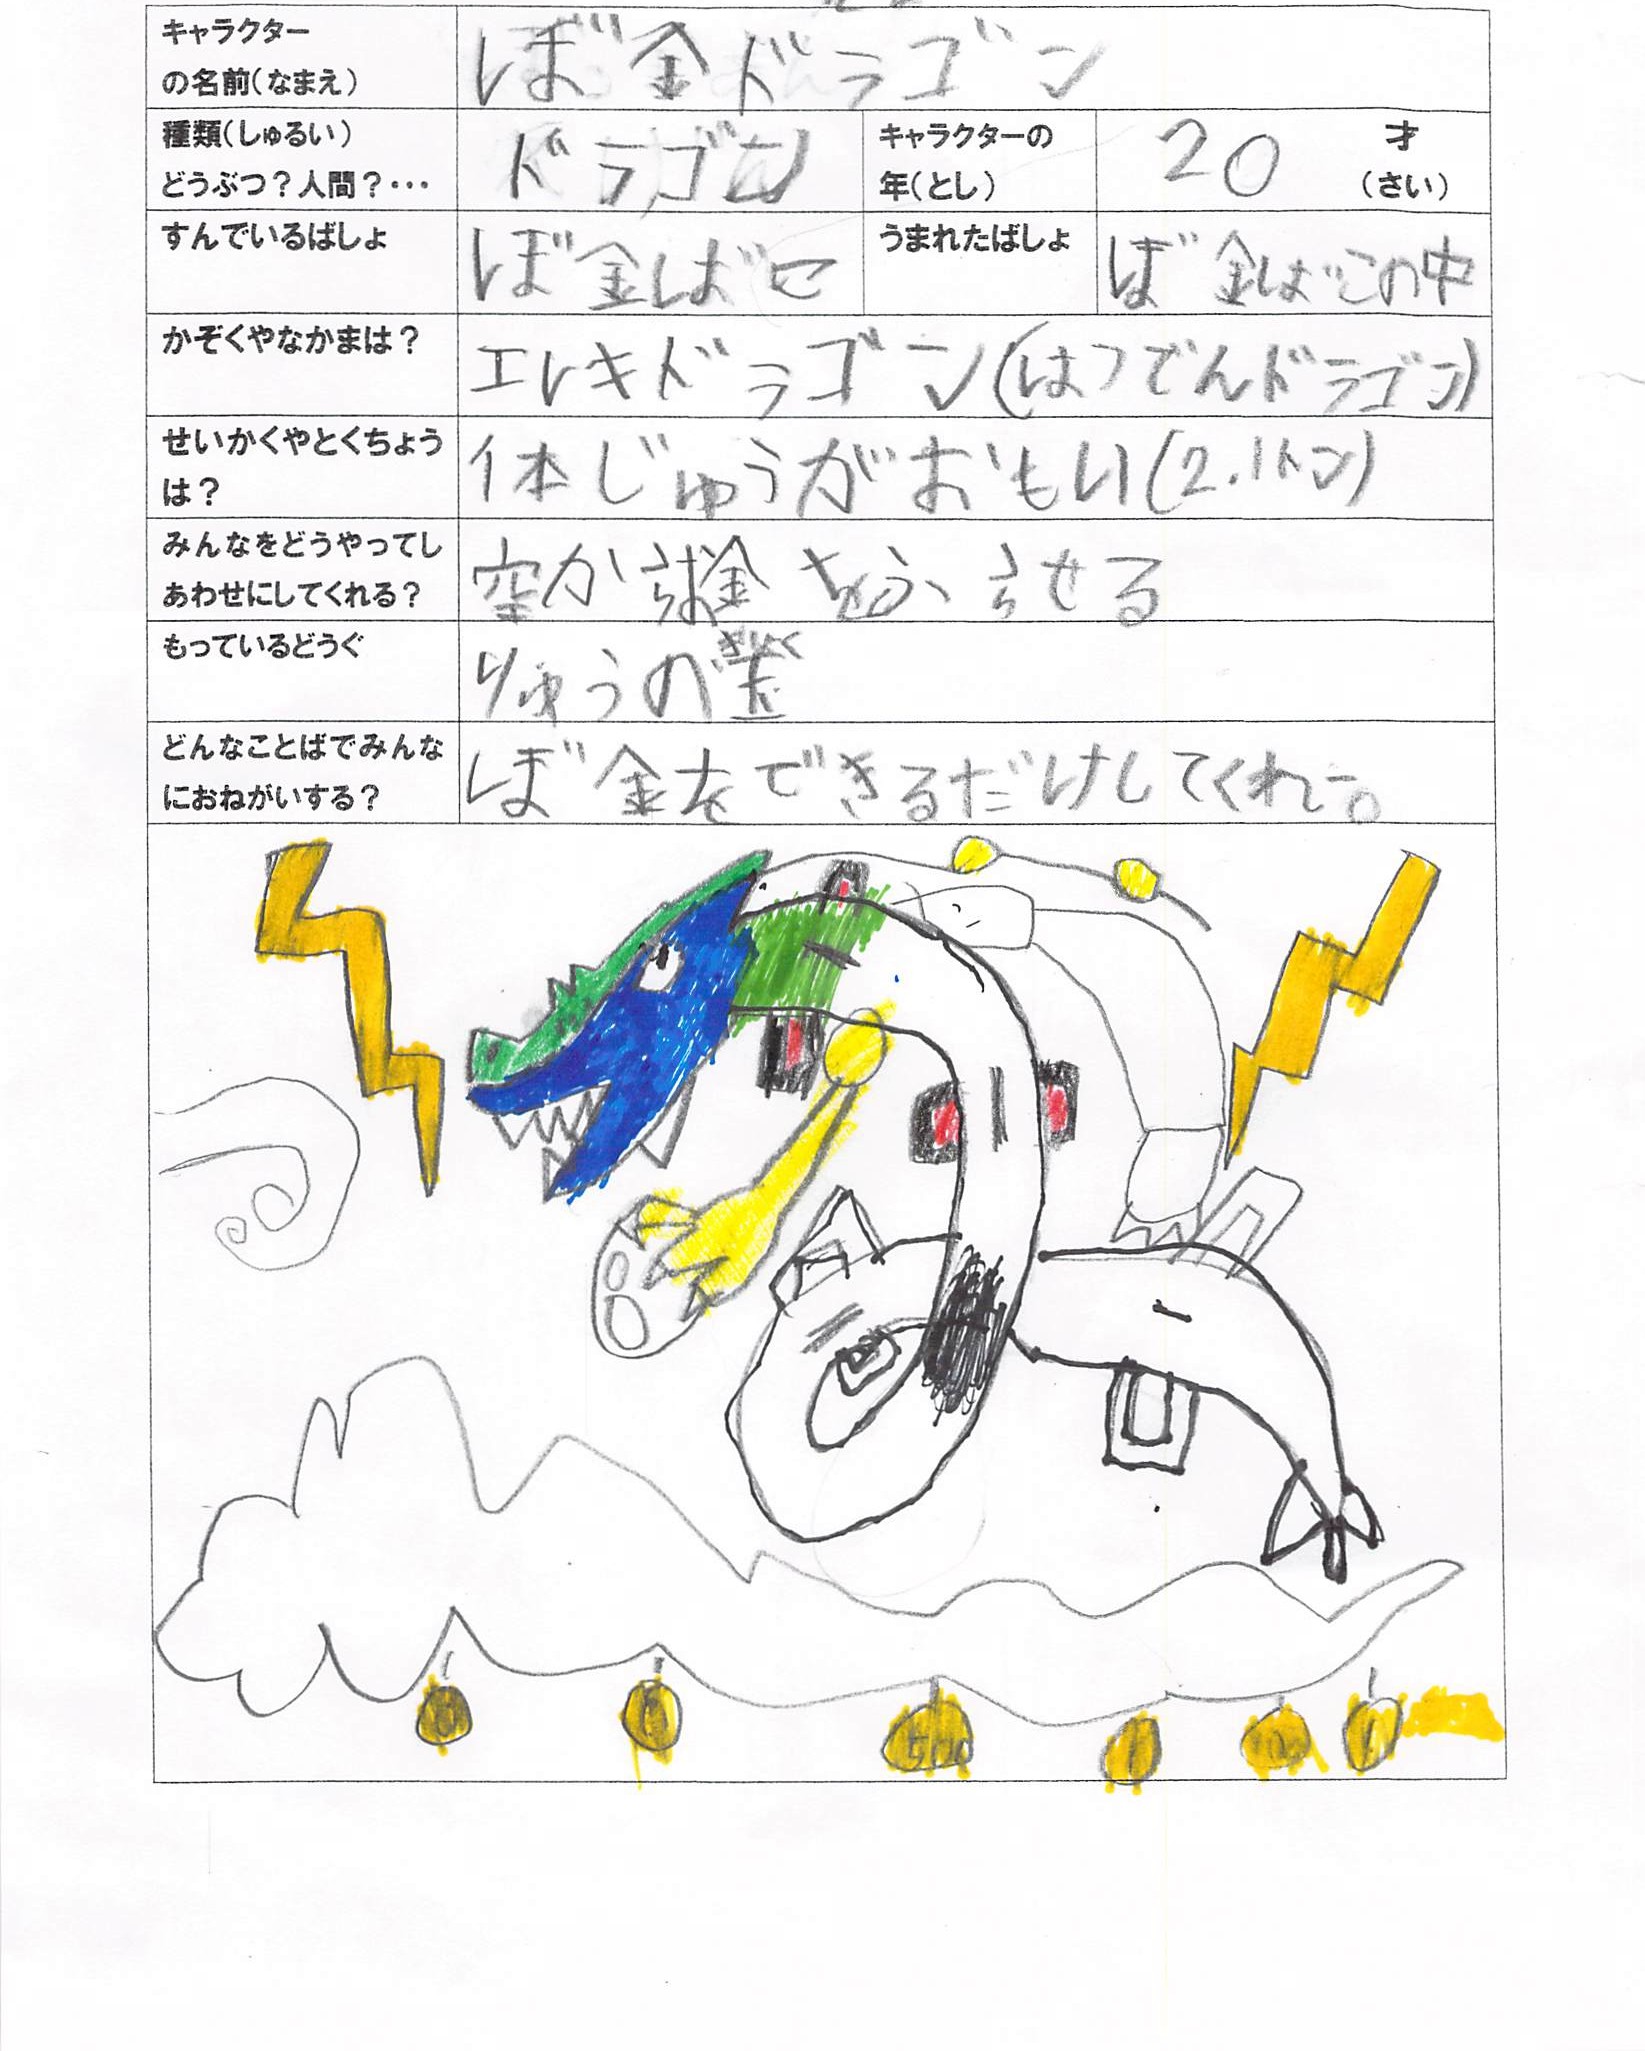 キャラクター
の名前(なまえ)
ぼ金ドラゴン
種類(しゅるい)
どうぶつ?人間?・・・
ドラゴン
キャラクターの
年(とし)
20
才
(さい)
すんでいるばしょ
ぼ金しばせ
うまれたばしょ
ぼ金ばこの中
かぞくやなかまは?
エレキドラゴン(はつでんドラゴン)
せいかくやとくちょう
は?
体じゅうがおもい(2.1トン)
みんなをどうやってし
あわせにしてくれる?
空からお金をふらせる
もっているどうぐ
りゅうの
どんなことばでみんな
におねがいする?
ぼ金をできるだけしてくれー。
500